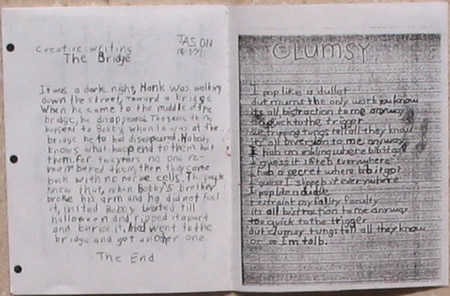 creative writing
JASON
The Bridge
It was a dark night, Hank was walking
down the street, toward a bridge
When he came to the middle of the
bridge, he disappeared. The same thing
happend to Bobby, when he was at the
bridge he to had disappeared. Nobody
knows what happend to them but
them. for two years no one re-
membered them then they came
back with no nerve cells. They
knew that, when Bobby's brother
broke his arm and he did not feel
it, insted Bobby waited till
halloween and ripped it apart
and buried it. And went to the
bridge and got another one.
The End
CLUMSY
I pop like a bullet
but mums the only word you know
its all bistraction to me anyway
quick to the trigger
tungs tell all they know
its all to me anyway
I hab a where bib it go?
I guess it everywhere
I hab a secret where bib it go?
I guess I it everywhere
I pop like a
restraint my faculty
its all bistraction to me anyway
too quick to the trigger
but clumsy tungs tell all they know
or so Im tolb.